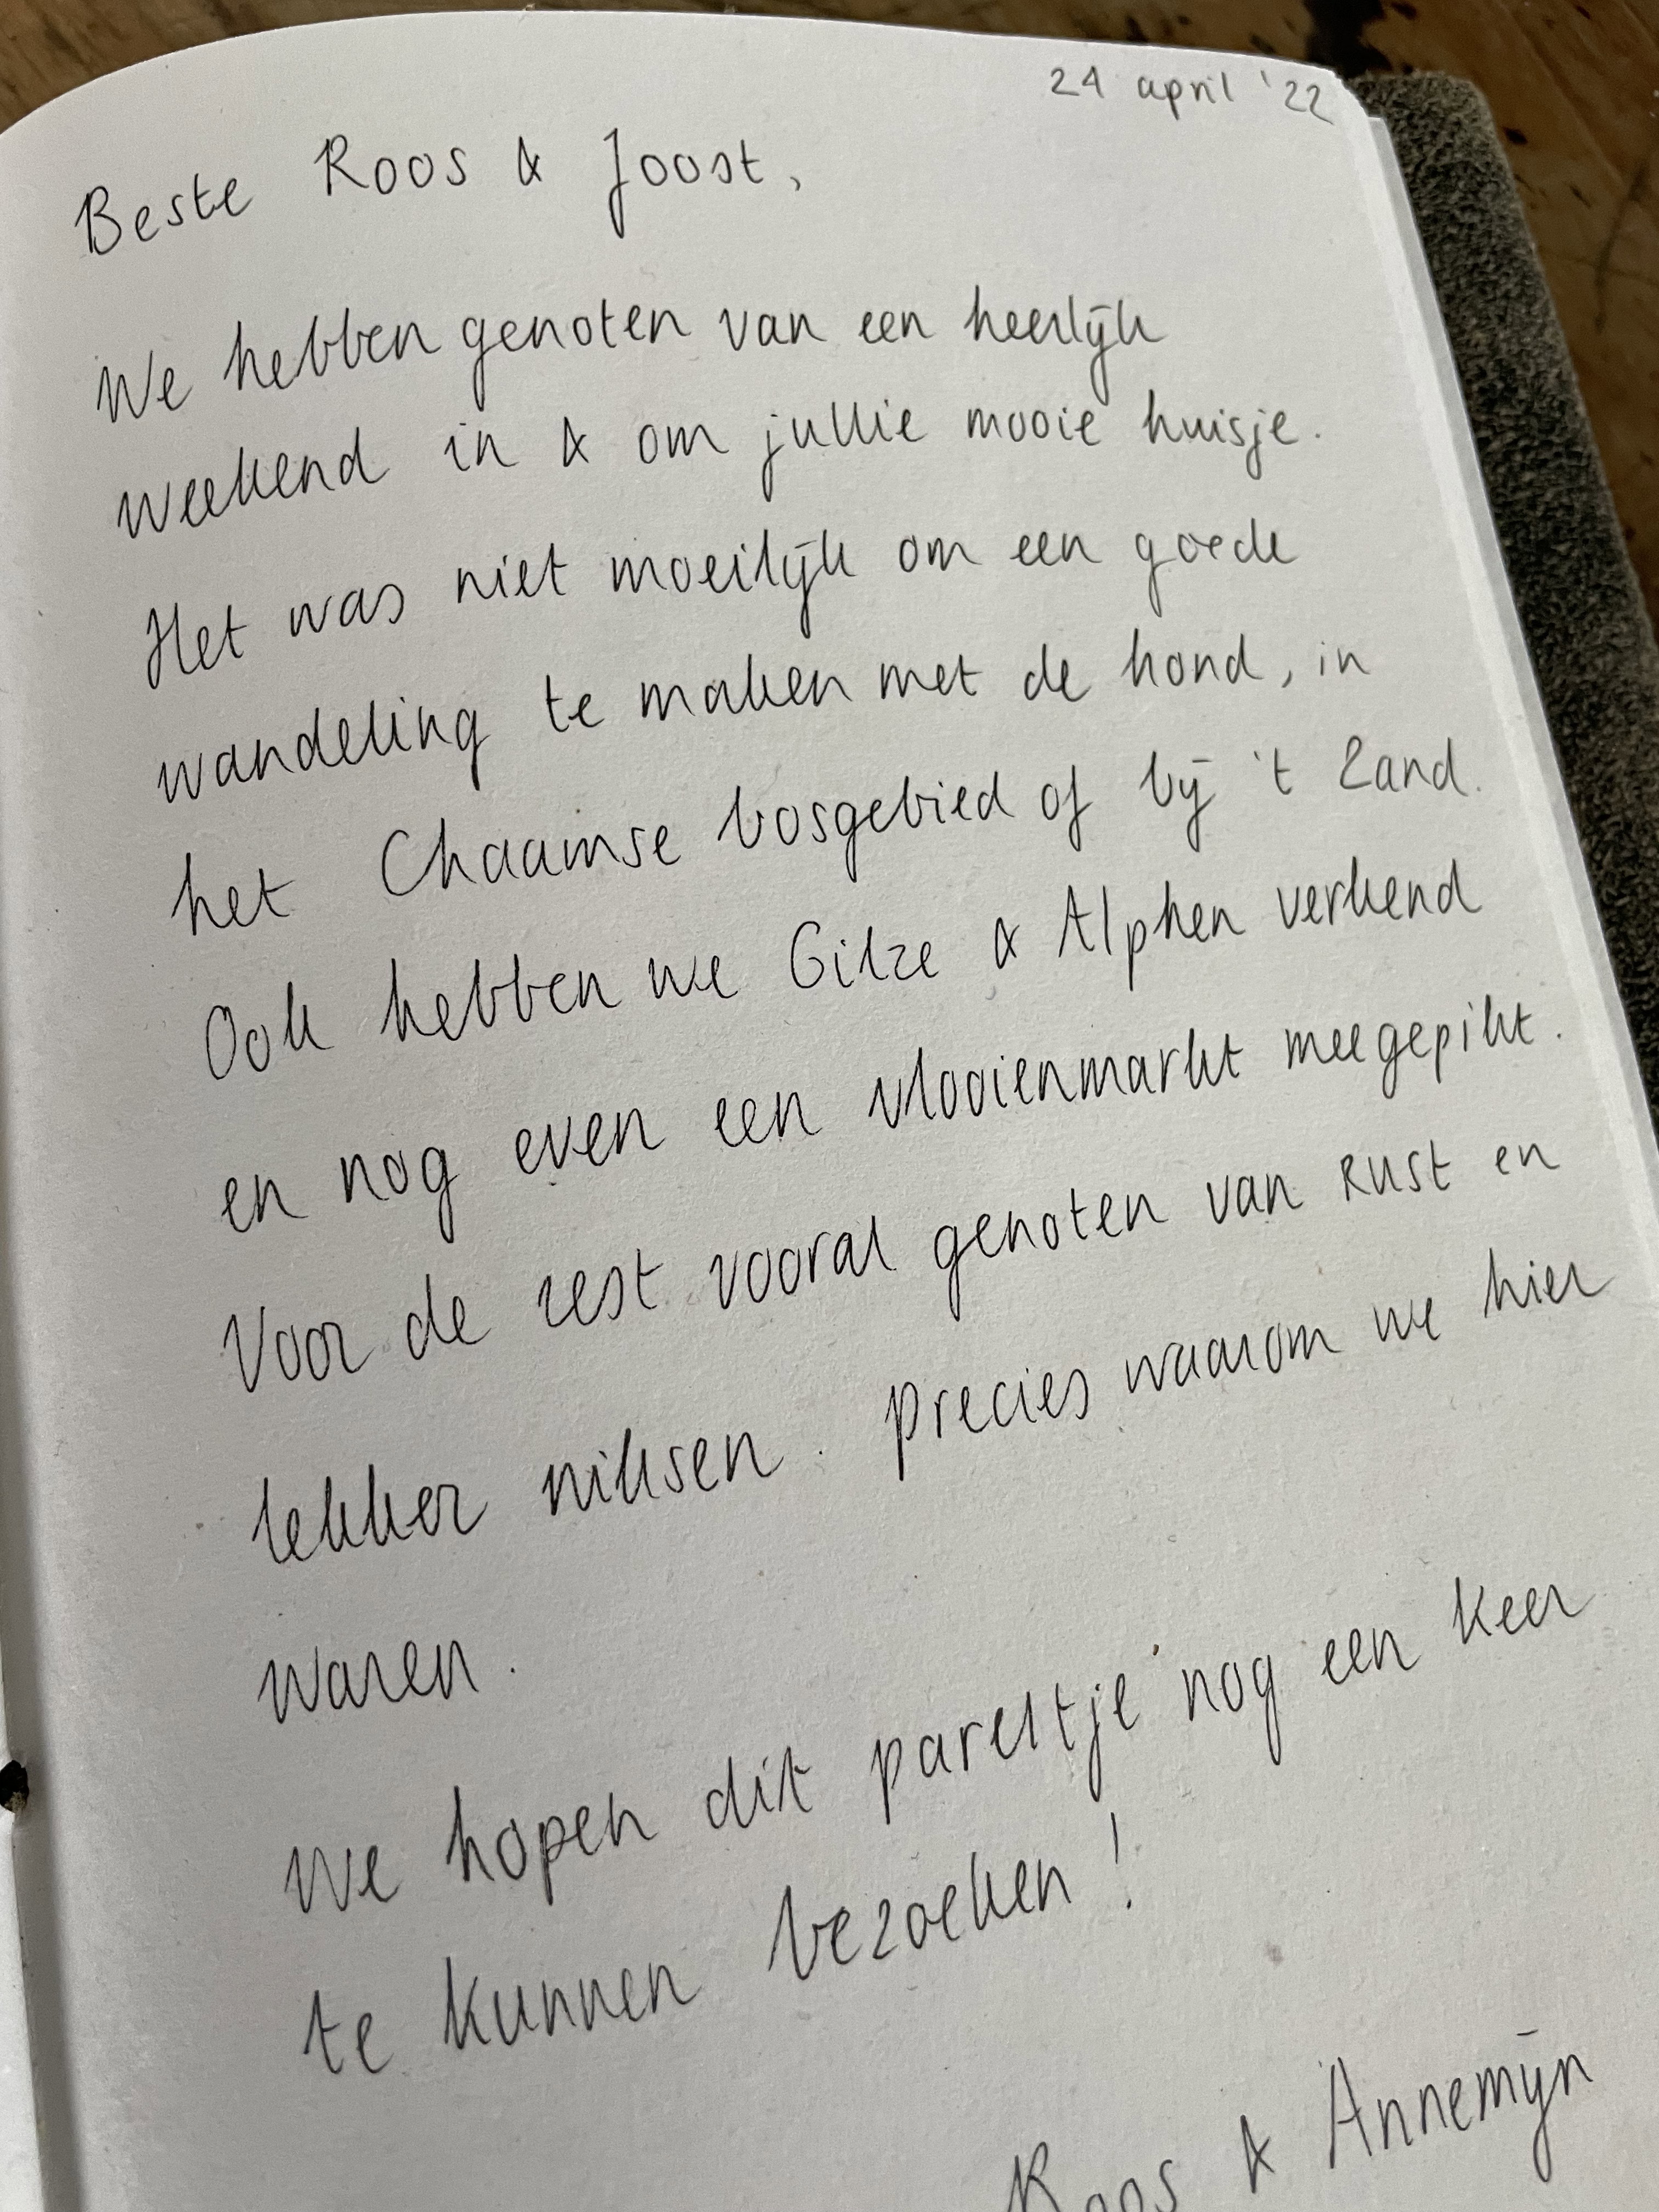 24 april '22
Beste Roos & Joost,
We hebben genoten van een heerlijk
weekend in & om jullie mooie huisje.
Het was niet moeilijk om een goede
wandeling te maken met de hond, in
het Chaamse bosgebied of bij 't Zand.
Ook hebben we Gilze & Alphen verkend
en nog even een vlooienmarkt meegepikt.
Voor de rest vooral genoten van rust en
lekker niksen. Precies waarom we hier
waren.
We hopen dit pareltje nog een keer
te kunnen bezoeken!
Roos & Annemijn